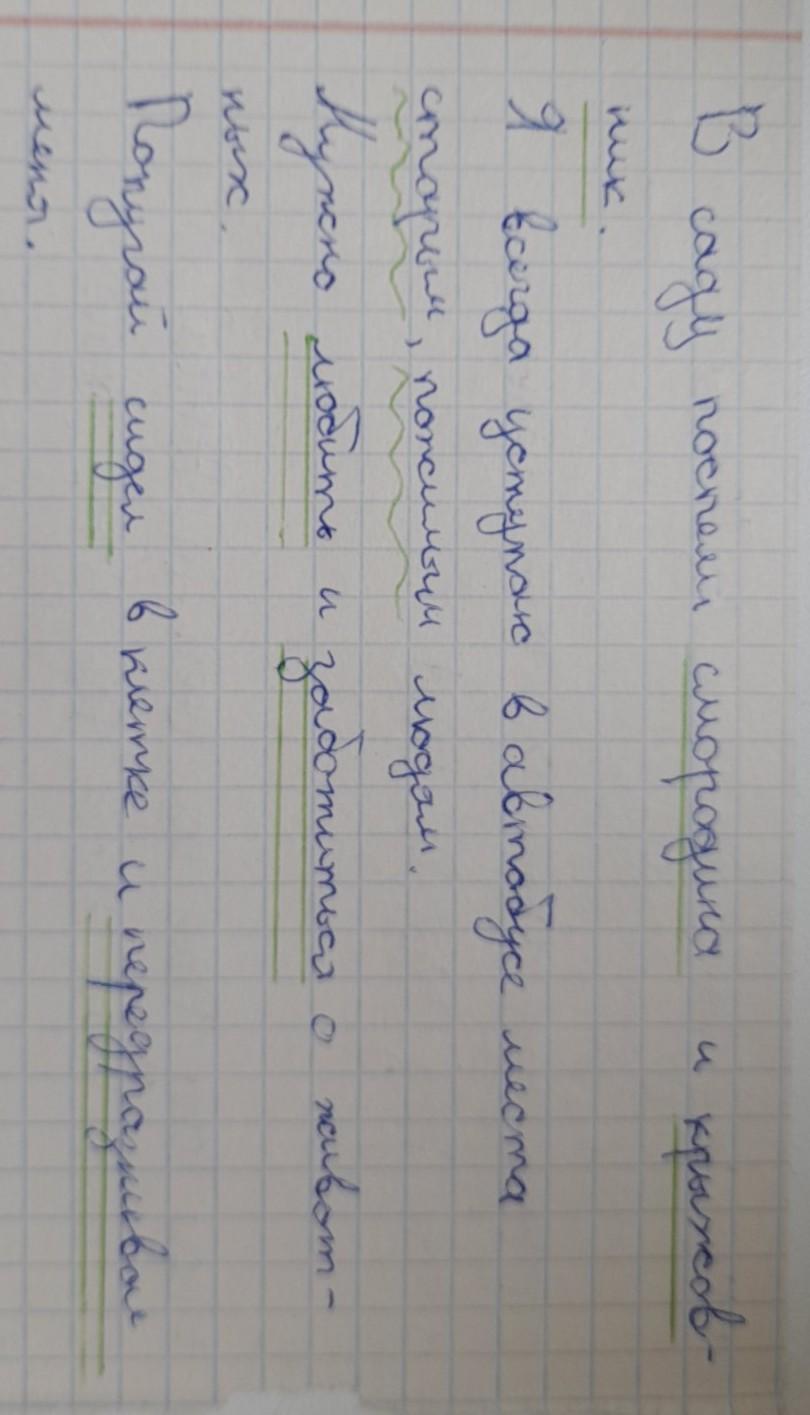 В саду поспели смородина и крыжов-
ник.
Я всегда уступаю в автобусе места
старым, пожилым людям.
Нужно любить и заботиться о живот-
ных.
Попугай сидел в клетке и передразнивал
меня.